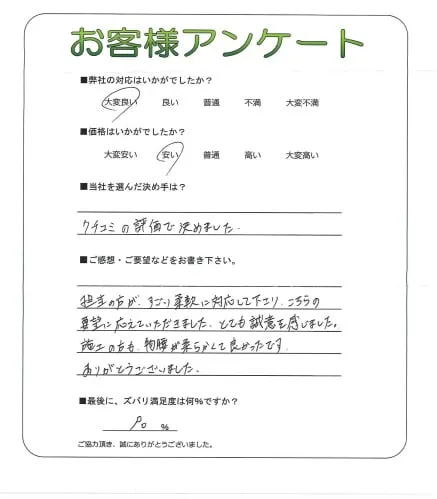 お客様アンケート
■弊社の対応はいかがでしたか？
大変良い 良い 普通 不満 大変不満
■価格はいかがでしたか？
大変安い 安い 普通 高い 大変高い
■当社を選んだ決め手は？
クチコミの評価で決めました.
■ご感想・ご要望などをお書き下さい。
担当の方が、すごい柔軟に対応して下さり、こちらの
要望に応えていただきました。とても誠意を感じました。
施工の方も、物腰が柔らかくて良かったです.
ありがとうございました.
■最後に、ズバリ満足度は何%ですか？
90 %
ご協力頂き、誠にありがとうございました。